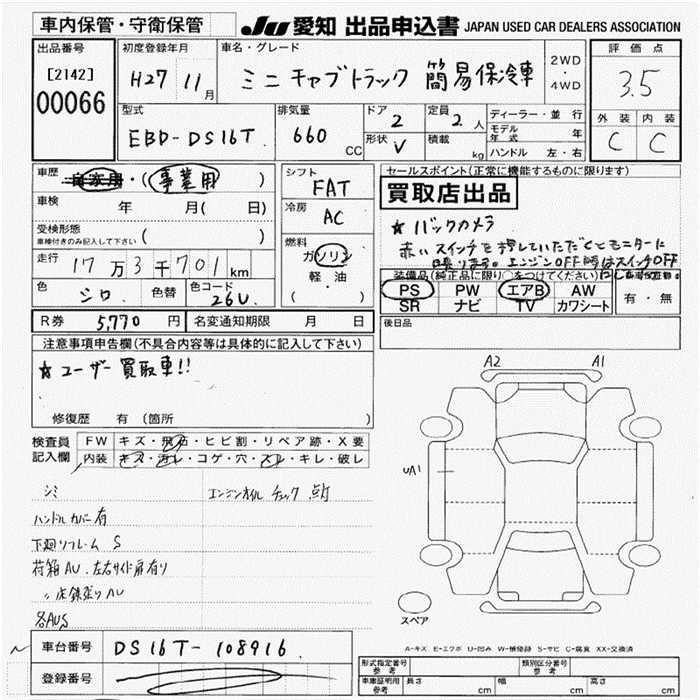 車内保管・守衛保管
JU 愛知 出品申込書 JAPAN USED CAR DEALERS ASSOCIATION
出品番号
[2142]
00066
初度登録年月
H27 11月
車名・グレード
ミニキャブトラック 簡易保冷車
2WD
・
4WD
評価点
3.5
外装 内装
C C
型式
EBD-DS16T
排気量
660 CC
ドア
2
形状
V
定員
2人
積載
kg
ディーラー・並行
モデル年式 年
ハンドル 左・右
車歴
自家用・(事業用)
車検 年 月( 日)
受検形態
車検付きのみ記入して下さい ( )
走行 17万3千701km
色 シロ 色替 色コード 26U
シフト
FAT
冷房
AC
燃料
ガソリン
軽・油
( )
セールスポイント(正常に機能するものに限ります)
買取店出品
★バックカメラ
赤いスイッチを押していただくとモニターに
エンジンOFF時はスイッチOFF
装備品(純正品に限り○をつけてください)
PS PW エアB AW
SR ナビ TV カワシート
有・無
R券 5,770円 名変通知期限 月 日
後日品
注意事項申告欄(不具合内容等は具体的に記入して下さい)
★ユーザー買取車!!
修復歴 有(箇所 )
検査員
記入欄
FW キズ・飛石・ヒビ割・リペア跡・X要
内装 キズ・汚レ・コゲ・穴・スレ・キレ・破レ
シミ
エンジンオイル チェック 点灯
ハンドルカバー有
下廻リフレーム S
荷箱AU. 左右サイド扉有り
〃 床鉄張りAU
各AUS
A2 A1
UA1
スペア
A-キズ E-エクボ U-凹み W-補修跡 S-サビ C-腐食 XX-交換済
車台番号 DS16T-108916
登録番号
形式指定番号
参考
類別区分番号
参考
車庫証明用
参考
長さ cm 幅 cm 高さ cm